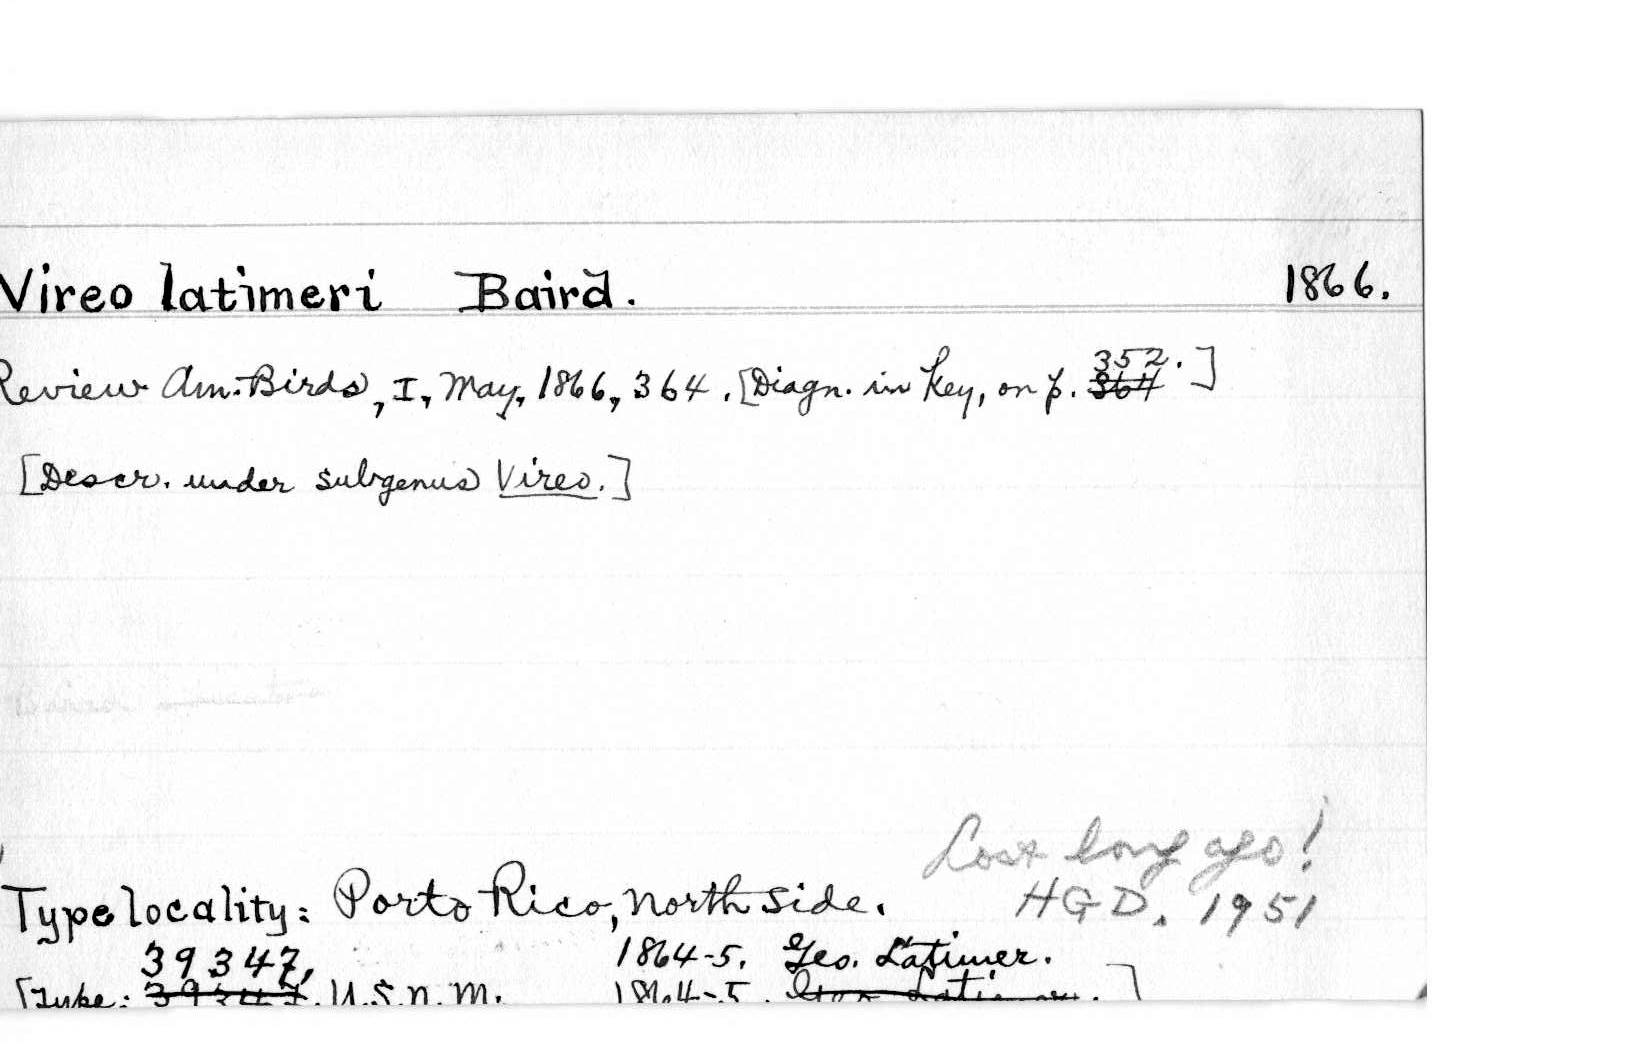 Vireo latimeri Baird. 1866.
Review Am. Birds, I, May, 1866, 364. [Diagn. in key, on p. 352.]
364
[Descr. under subgenus Vireo.]
Lost long ago!
HGD. 1951
Type locality: Porto Rico, north side.
39347, 1864-5. Geo. Latimer.
[Type: 39347. U.S.n.m. 1864-5. Geo. Latimer.]